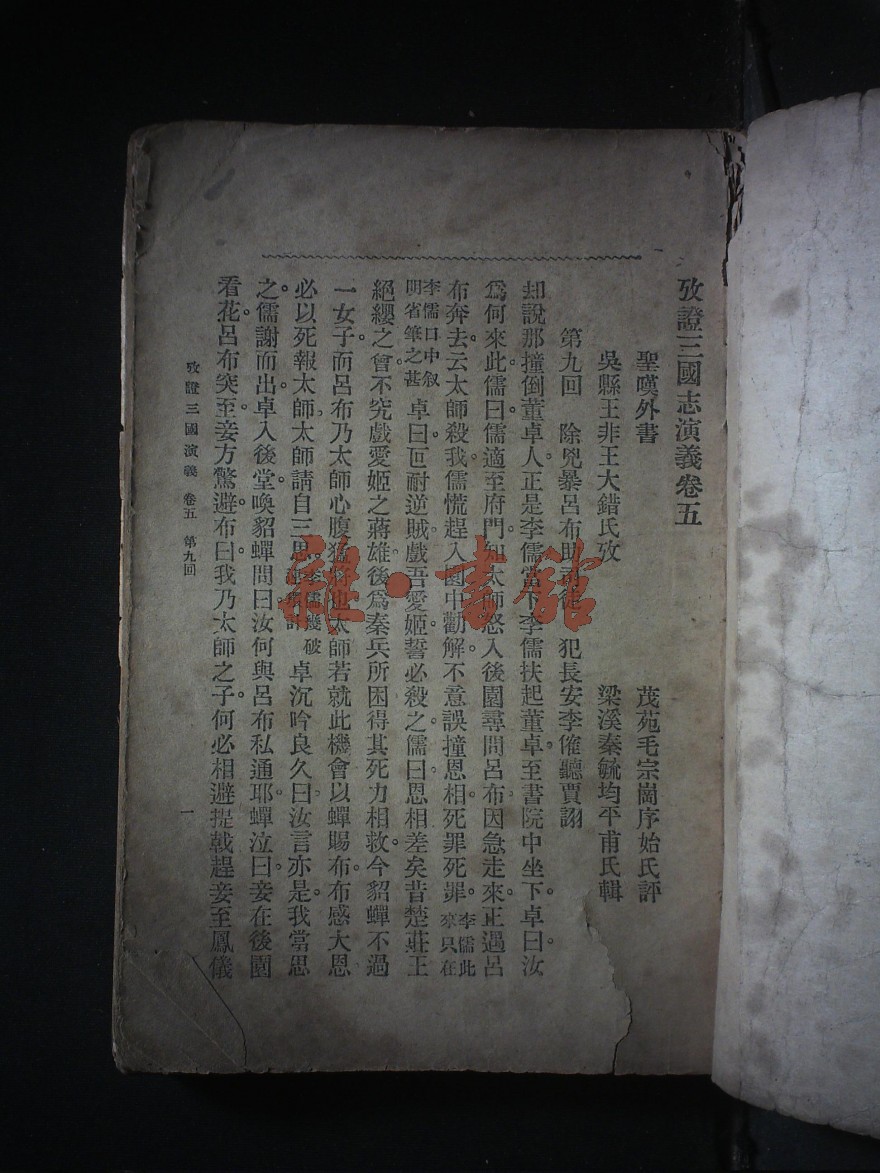 攷證三國志演義卷五
聖嘆外書　茂苑毛宗崗序始氏評
吳縣王非王大錯氏攷　梁溪秦毓均平甫氏輯
第九回　除兇暴呂布助司徒　犯長安李傕聽賈詡
却說那撞倒董卓人。正是李儒。當下李儒扶起董卓。至書院中坐下。卓曰。汝
爲何來此。儒曰。儒適至府門。知太師怒入後園尋問呂布。因急走來。正遇呂
布奔去。云太師殺我。儒慌趕入園中勸解。不意誤撞恩相。死罪死罪。李儒此來只在
李儒口中叙明省筆之甚　卓曰。叵耐逆賊。戲吾愛姬。誓必殺之。儒曰。恩相差矣。昔楚莊王
絕纓之會。不究戲愛姬之蔣雄。後爲秦兵所困。得其死力相救。今貂蟬不過
一女子。而呂布乃太師心腹猛將也。太師若就此機會。以蟬賜布。布感大恩。
必以死報太師。太師請自三思。李儒幾破連環計　卓沉吟良久曰。汝言亦是。我當思
之。儒謝而出。卓入後堂。喚貂蟬問曰。汝何與呂布私通耶。蟬泣曰。妾在後園
看花。呂布突至。妾方驚避。布曰。我乃太師之子。何必相避。提戟趕妾至鳳儀
攷證三國演義　卷五　第九回　一
雜·書館